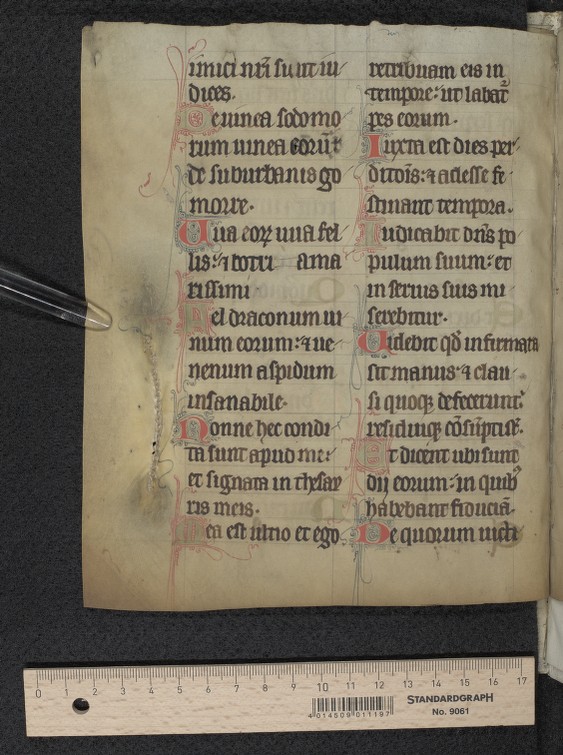 imici nr̄i sunt iu
dices.
De uinea sodomo
rum uinea eorū: ⁊
de suburbanis go
morre.
Uua eoꝝ uua fel
lis: ⁊ botri ama
rissimi
Fel draconum ui
num eorum: ⁊ ue
nenum aspidum
insanabile.
Nonne hec condi
ta sunt apud me:
et signata in thesau
ris meis.
Mea est ultio et ego
retribuam eis in
tempore: ut labat᷑
pes eorum.
Iuxta est dies per
ditōis: ⁊ adesse fe
stinant tempora.
Iudicabit dn̄s po
pulum suum: et
in seruis suis mi
serebitur.
Uidebit qd̄ infirmata
sit manus: ⁊ clau
si quoqꝫ defecerunt:
residuiqꝫ cōsūpti sē.
Et dicent ubi sunt
dij eorum: in quibꝰ
habebant fiduciā.
De quorum uicti
0 1 2 3 4 5 6 7 8 9 10 11 12 13 14 15 16 17
4 014509 011197
STANDARDGRAPH
No. 9061